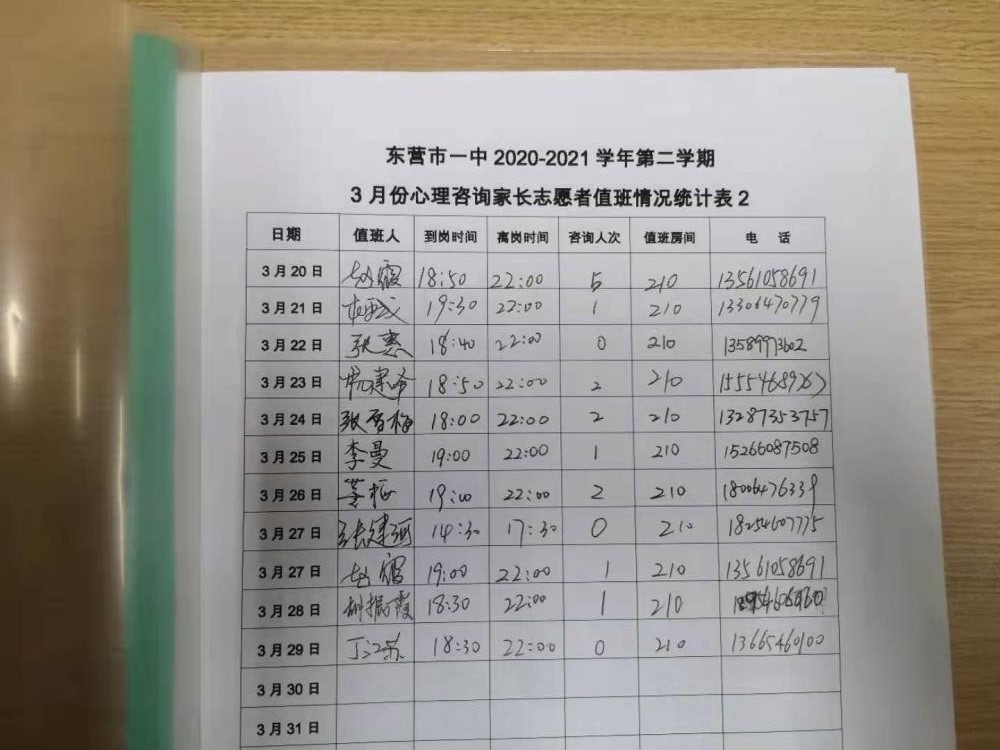 东营市一中 2020-2021 学年第二学期
3 月份心理咨询家长志愿者值班情况统计表 2
日期 值班人 到岗时间 离岗时间 咨询人次 值班房间 电 话
3 月 20 日 赵霞 18:50 22:00 5 210 13561058691
3 月 21 日 19:30 22:00 1 210 13306470779
3 月 22 日 张惠 18:40 22:00 0 210 13589973602
3 月 23 日 18:50 22:00 2 210
3 月 24 日 张雪梅 18:00 22:00 2 210 13287353757
3 月 25 日 李曼 19:00 22:00 1 210 15266087508
3 月 26 日 19:00 22:00 2 210 18006476339
3 月 27 日 张建河 14:30 17:30 0 210 18254607775
3 月 27 日 赵霞 19:00 22:00 1 210 13561058691
3 月 28 日 胡振霞 18:30 22:00 1 210
3 月 29 日 丁江苏 18:30 22:00 0 210 13665460100
3 月 30 日
3 月 31 日